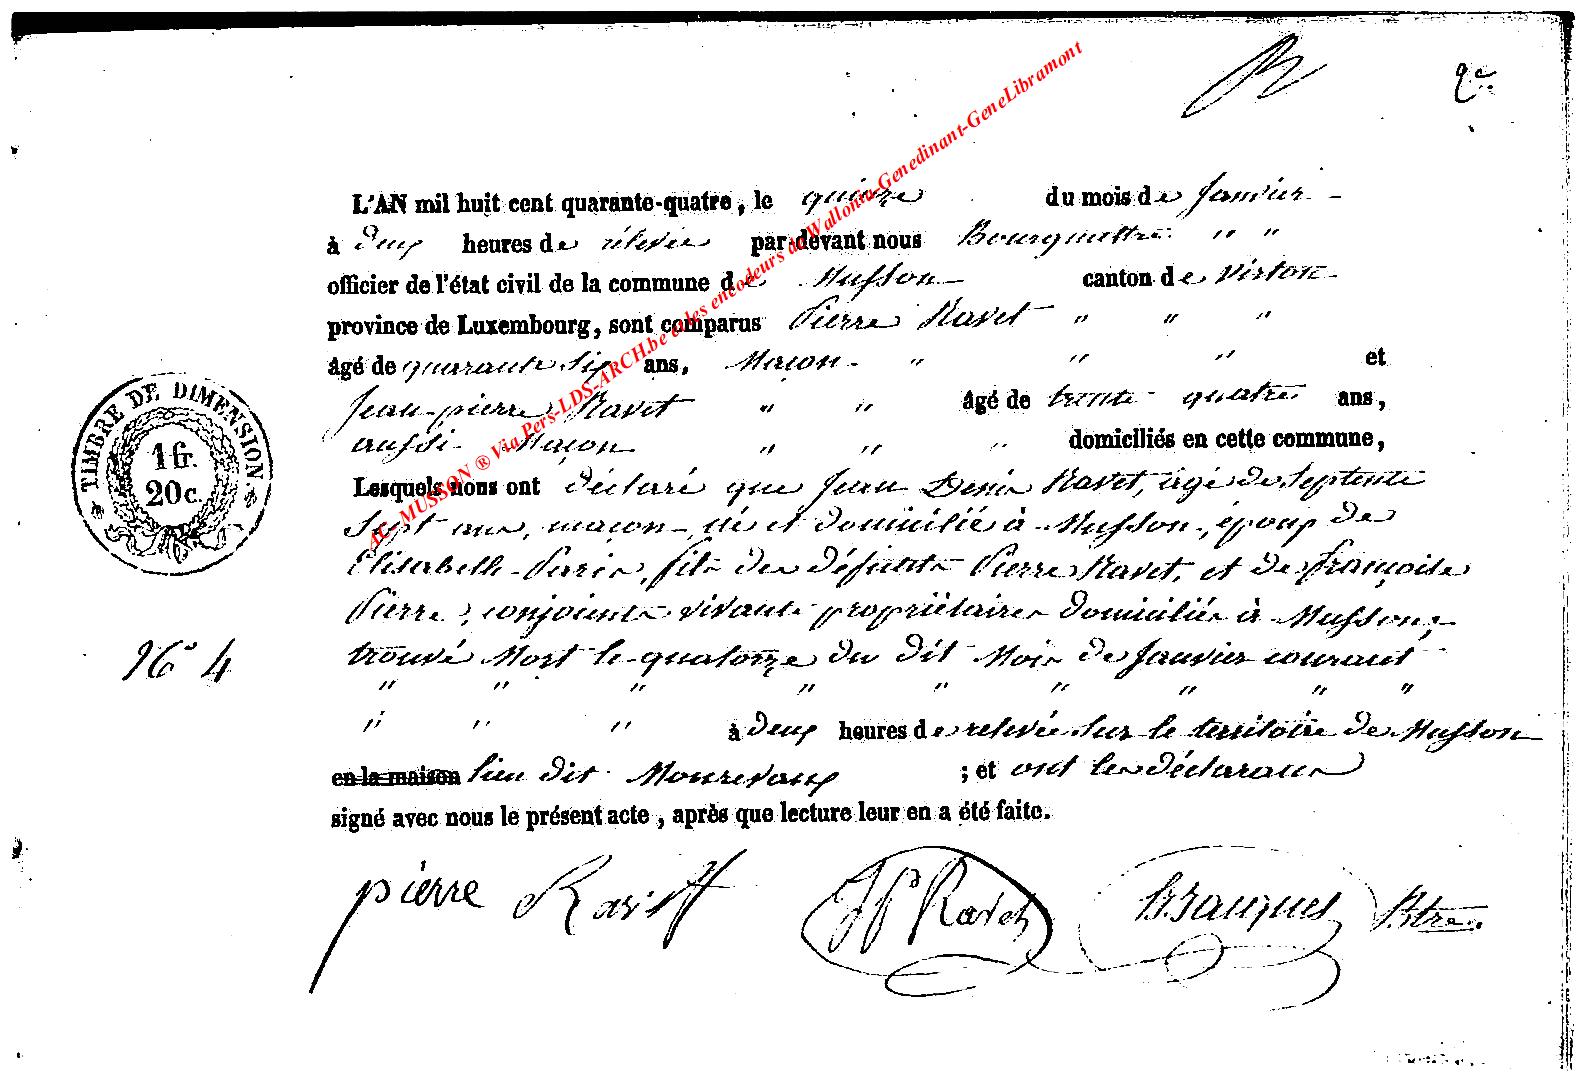 2e
L'AN mil huit cent quarante-quatre, le quinze du mois de Janvier
à deux heures de rélevée par devant nous Bourguettre " "
officier de l'état civil de la commune de Musson canton de Virton
province de Luxembourg, sont comparus Pierre Ravet " " "
âgé de quarante six ans, Maçon " " " et
Jean-pierre Ravet " " âgé de trente quatre ans,
aussi Maçon " " " domiciliés en cette commune,
Lesquels nous ont déclaré que Jean Denis Ravet, agé de Septente
Sept ans, maçon, né et domicilié à Musson, époux de
Elisabeth, fils des défunts Pierre Ravet, et de françoise
Pierre, conjoints vivants propriétaires domiciliés à Musson,
trouvé Mort le quatorze du dit Mois de Janvier courant
" " " " " " " " "
" " " à deux heures de relevée sur le territoire de Musson
en la maison lieu dit ; et ont les déclarans
signé avec nous le présent acte, après que lecture leur en a été faite.
TIMBRE DE DIMENSION.
1 fr.
20 c.
No 4
pierre JP Ravet
AC-MUSSON ® Via Pers-LDS-ARCH.be et les encodeurs de Wallonia-Genedinant-GeneLibramont